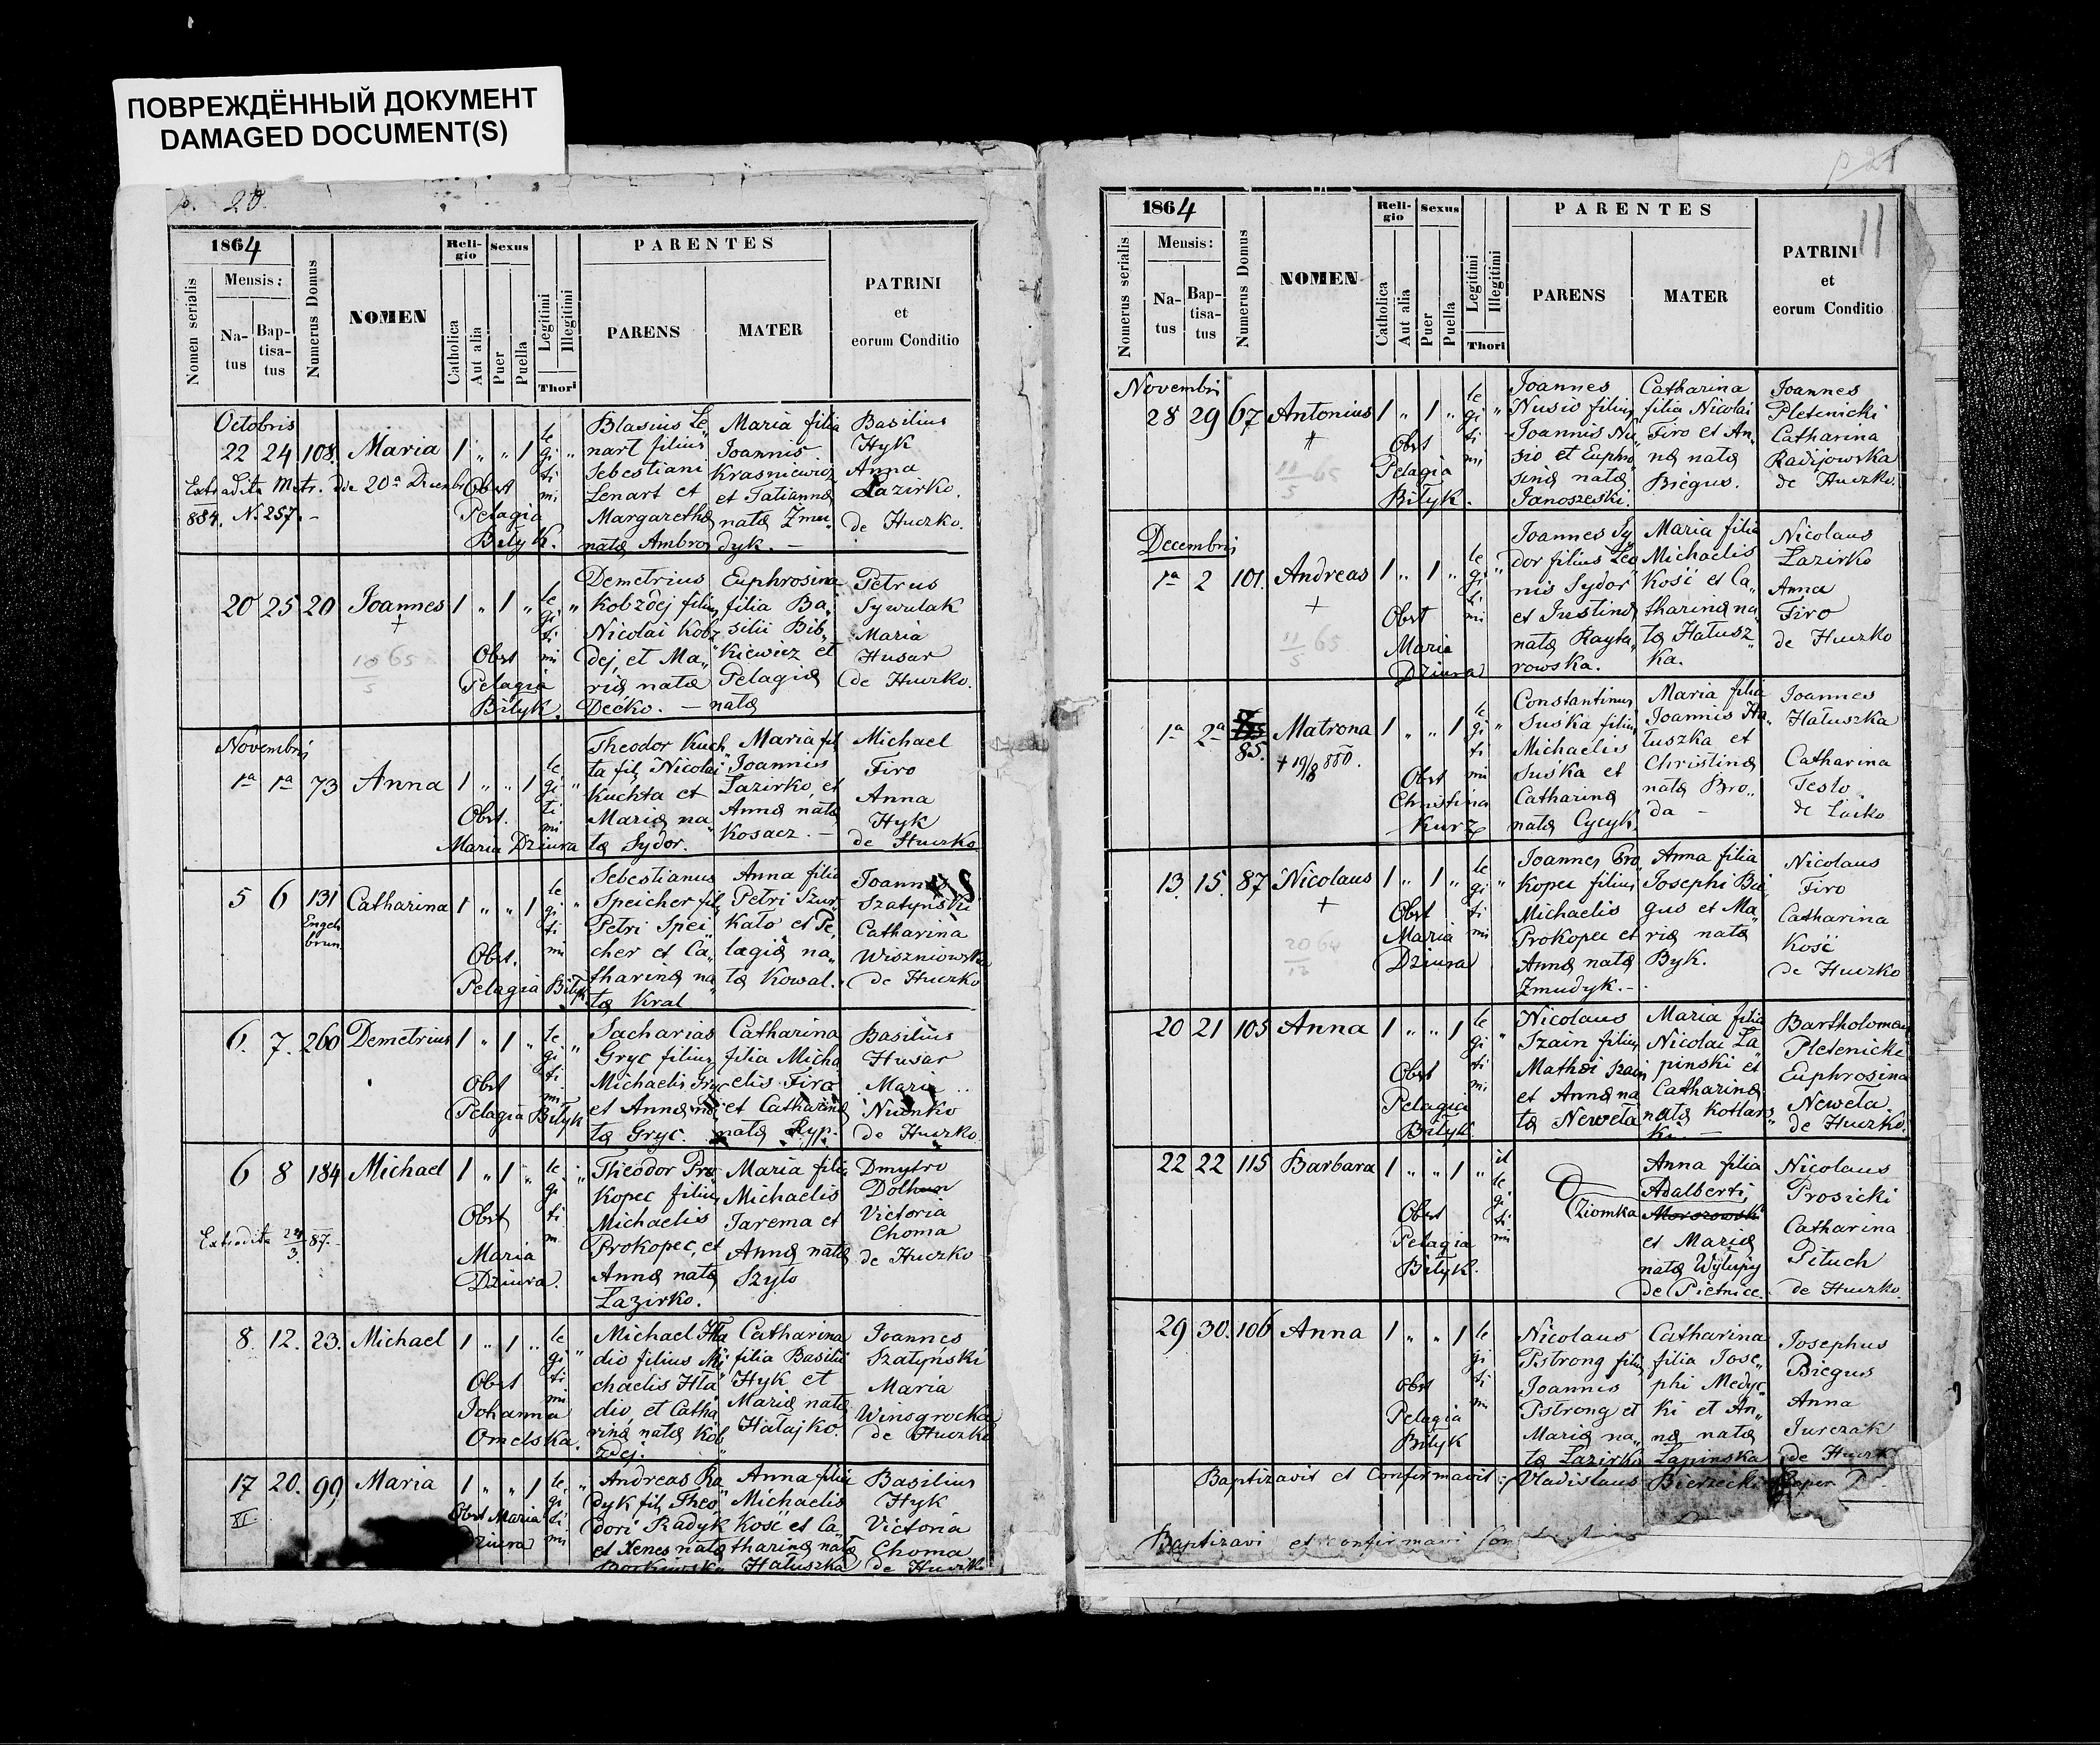 ПОВРЕЖДЁННЫЙ ДОКУМЕНТ
DAMAGED DOCUMENT(S)
p. 20.
1864
Nomen serialis
Mensis:
Natus
Baptisatus
Numerus Domus
NOMEN
Religio
Catholica
Aut alia
Sexus
Puer
Puella
Legitimi
Illegitimi
Thori
PARENTES
PARENS
MATER
PATRINI
et
eorum Conditio
Octobris
22 24 108. Maria 1 „ „ 1 legitimi „
Extradita Metr. die 20ª Decembr
884. N. 257. –
Obst
Pelagia
Bilyk.
Blasius Le„
nart filius
Sebestiani
Lenart et
Margaretha
nata Ambro
Maria filia
Joannis
Krasniewicz
et Tatianna
nata Zmu„
dyk. –
Basilius
Hyk
Anna
Lazirko.
de Huczko.
20 25 20 Joannes 1 „ 1 „ legitimi „
+
10/5 65
Obst
Pelagia
Bilyk.
Demetrius
Kobzdej filius
Nicolai Kobz
dej, et Ma„
ria nata
Dećko. –
Euphrosina
filia Ba„
silii Bib„
Kiewicz et
Pelagia
nata
Petrus
Sywulak
Maria
Husar
de Huczko.
Novembris
1ª 1ª 73 Anna 1 „ „ 1 legitimi „
Obst.
Maria Dziura
Theodor Kuch„
ta fil. Nicolai
Kuchta et
Maria na„
ta Sydor.
Maria fil
Joannis
Lazirko, et
Anna nata
Kosacz. –
Michael
Firo
Anna
Hyk
de Huczko
5 6 131 Catharina 1 „ „ 1 legitimi „
Engels
brun
Obst.
Pelagia Bilyk
Sebestianus
Speicher fil.
Petri Spei„
cher et Ca„
tharina na„
ta Kral
Anna filia
Petri Szur„
Kalo et Pe„
lagia na„
ta Kowal.
Joannes
Szatyński
Catharina
Wiszniowska
de Huczko
6. 7. 260 Demetrius 1 „ 1 „ legitimi „
Obst
Pelagia Bilyk
Sacharias
Gryc filius
Michaelis Gryc
et Anna na
ta Gryc.
Catharina
filia Micha
elis Firo
et Catharina
nata Ryp.
Basilius
Husar
Maria
Nunko
de Huczko.
6 8 184 Michael 1 „ 1 „ legitim „
Extradita 24/3 87.
Obst
Maria
Dziura.
Theodor Pro
Kopec filius
Michaelis
Prokopec, et
Anna nata
Lazirko.
Maria filia
Michaelis
Jarema et
Anna nata
Szylo
Dmytro
Dolhun
Victoria
Choma
de Huczko
8. 12. 23. Michael 1 „ 1 „ legitimi „
Obst
Johanna
Omelska.
Michael Hla
dio filius Mi„
chaelis Hla„
dio, et Catha
rina nata Kob
zdej.
Catharina
filia Basilii
Hyk et
Maria nata
Hatajko.
Joannes
Szatyński
Maria
Winsgrocka
de Huczko
17 20. 99 Maria 1 „ „ 1 legitimi „
XI.
Obst Maria
Dziura
Andreas Ra
dyk fil. Theo„
dori Radyk
et Xenes nata
Anna filia
Michaelis
Kość et Ca„
tharina nata
Hatuszka
Basilius
Hyk
Victoria
Choma
de Huczko
p 21
11
1864
Nomerus serialis
Mensis:
Natus
Baptisatus
Numerus Domus
NOMEN
Religio
Catholica
Aut alia
Sexus
Puer
Puella
Legitimi
Illegitimi
Thori
PARENTES
PARENS
MATER
PATRINI
et
eorum Conditio
Novembris
28 29 67 Antonius 1 „ 1 „ legitimi „
+
11/5 65
Obst
Pelagia
Bilyk.
Joannes
Nusio filius
Joannis Nu„
sio et Euphro
sina nata
Janoszeski.
Catharina
filia Nicolai
Firo et An„
na nata
Biegus.
Joannes
Pletenicki
Catharina
Radijowska
de Huczko.
Decembris
1ª 2 101. Andreas 1 „ 1 „ legitimi „
+
11/5 65
Obst
Maria
Dziura
Joannes Sy
dor filius Leo
nis Sydor
et Justina
nata Rayta„
rowska.
Maria filia
Michaelis
Kość et Ca„
tharina na„
ta Hatusz„
ka.
Nicolaus
Lazirko
Anna
Firo
de Huczko
1ª 2ª 85. Matrona 1 „ „ 1 legitimi „
+ 19/8 880.
Obst
Christina
Kurz
Constantinus
Suśka filius
Michaelis
Suśka et
Catharina
nata Cycyk.
Maria filia
Joannis Ha„
tuszka et
Christina
nata Bro„
da –
Joannes
Hatuszka
Catharina
Testo.
de Lacko
13. 15. 87 Nicolaus 1 „ 1 „ legitimi „
+
20/13 64
Obst
Maria
Dziura
Joannes Pro
Kopec filius
Michaelis
Prokopec et
Anna nata
Zmudyk. –
Anna filia
Josephi Bie
gus et Ma„
ria nata
Byk.
Nicolaus
Firo
Catharina
Kość
de Huczko
20 21 105 Anna 1 „ „ 1 legitimi „
Obst
Pelagia
Bilyk.
Nicolaus
Szain filius
Mathei Szain
et Anna na
ta Neweta
Maria filia
Nicolai La„
pinski et
Catharina
nata Kotlars„
Ki. –
Bartholomaus
Pletenicki
Euphrosina
Neweta.
de Huczko.
22 22 115 Barbara 1 „ „ 1 „ illegitimi
Obst
Pelagia
Bilyk.
Ziomka
Anna filia
Adalberti
Morozowski
et Maria
nata Wylupij
de Pietnice.
Nicolaus
Prosicki
Catharina
Pituch
de Huczko.
29 30. 106 Anna 1 „ „ 1 legitimi
Obst
Pelagia
Bilyk
Nicolaus
Pstrong filius
Joannis
Pstrong et
Maria na„
ta Lazirko
Catharina
filia Jose„
phi Medyc„
Ki et An„
na nata
Lapinska
Josephus
Biegus
Anna
Jurczak
de Huczk
Baptizavit et Confirmavit: Vladislaus Bierzecki
Baptizavi et confirmavi